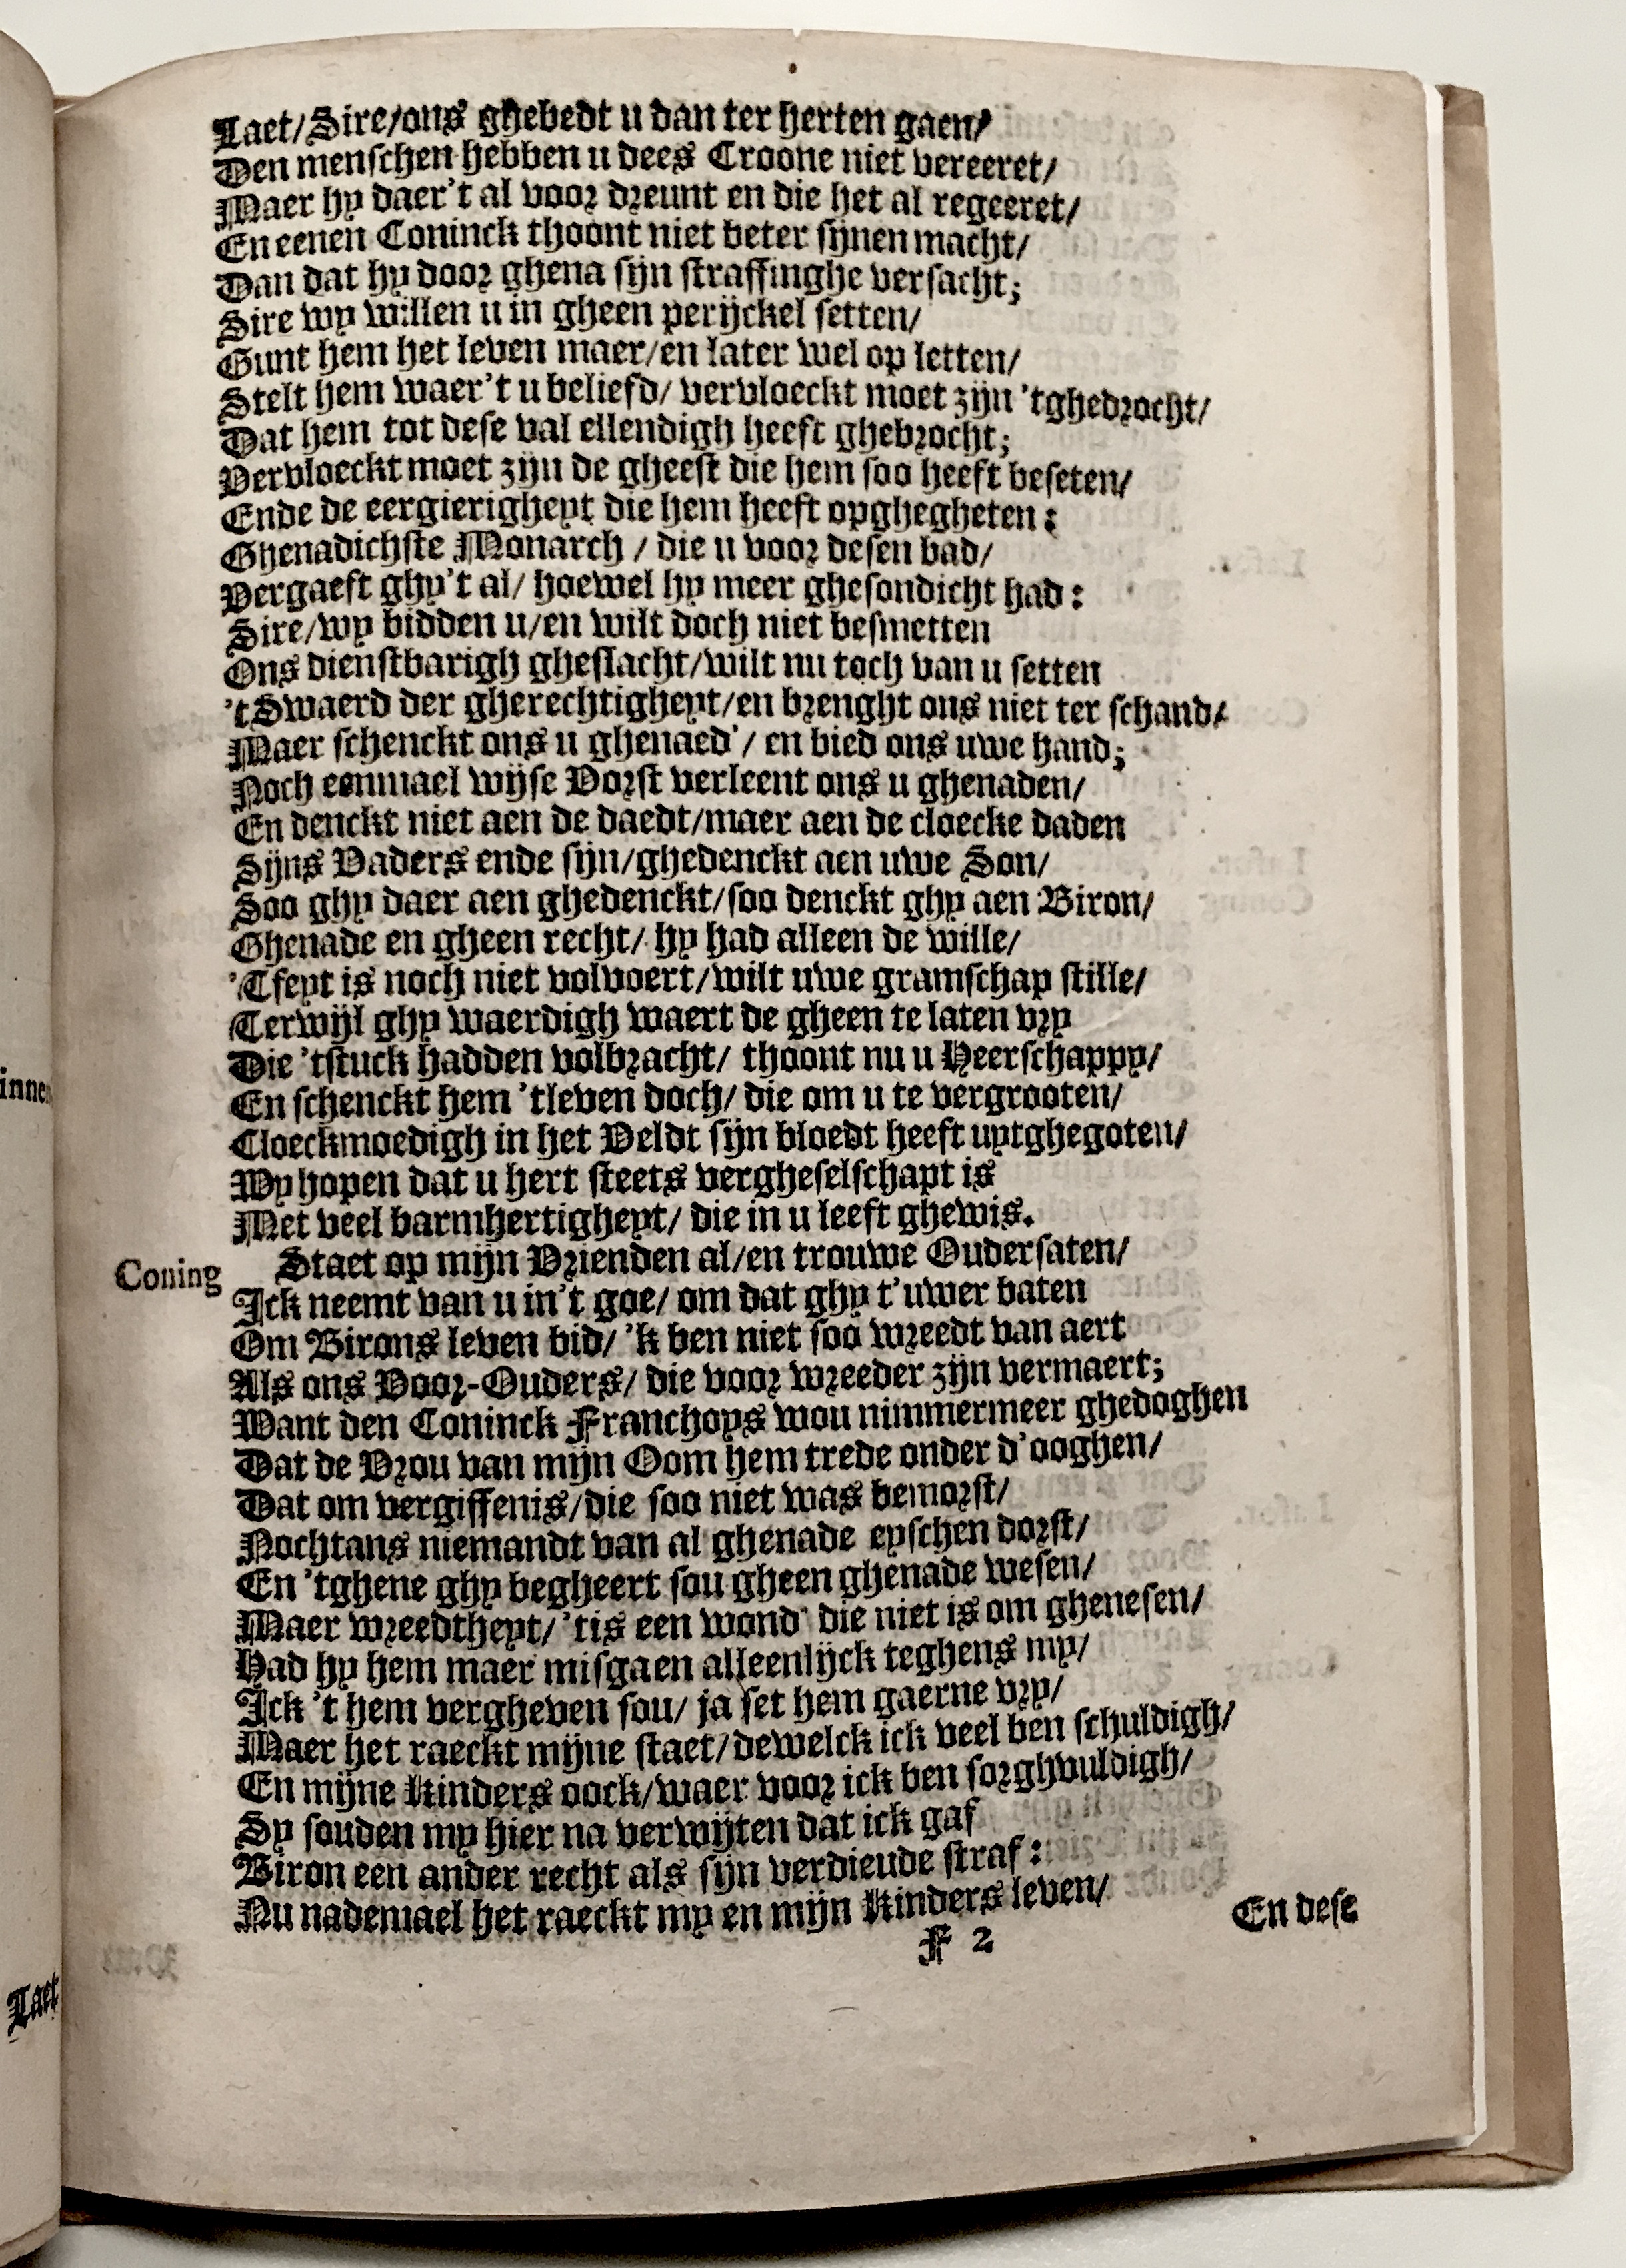 Laet/Sire/ons ghebedt u dan ter herten gaen/
Den menschen hebben u dees Croone niet vereeret/
Maer hy daer't al voor dreunt en die het al regeeret/
En eenen Coninck thoont niet beter sijnen macht/
Dan dat hy door ghena sijn straffinghe versacht;
Sire wy willen u in gheen perijckel setten/
Gunt hem het leven maer/en later wel op letten/
Stelt hem waer't u beliefd/ vervloeckt moet zijn 'tghedrocht/
Dat hem tot dese val ellendigh heeft ghebrocht;
Vervloeckt moet zijn de gheest die hem soo heeft beseten/
Ende de eergierigheyt die hem heeft opghegheten:
Ghenadichste Monarch / die u voor desen bad/
Vergaeft ghy't al/ hoewel hy meer ghesondicht had:
Sire/wy bidden u/en wilt doch niet besmetten
Ons dienstbarigh gheslacht/wilt nu toch van u setten
't Swaerd der gherechtigheyt/en brenght ons niet ter schand/
Maer schenckt ons u ghenaed'/ en bied ons uwe hand;
Noch eenmael wijse Vorst verleent ons u ghenaden/
En denckt niet aen de daedt/maer aen de cloecke daden
Sijns Vaders ende sijn/ghedenckt aen uwe Son/
Soo ghy daer aen ghedenckt/soo denckt ghy aen Biron/
Ghenade en gheen recht/ hy had alleen de wille/
'Tfeyt is noch niet volvoert/wilt uwe gramschap stille/
Terwijl ghy waerdigh waert de gheen te laten vry
Die 'tstuck hadden volbracht/ thoont nu u Heerschappy/
En schenckt hem 'tleven doch/ die om u te vergrooten/
Cloeckmoedigh in het Veldt sijn bloedt heeft uytghegoten/
Wy hopen dat u hert steets vergheselschapt is
Met veel barmhertigheyt/ die in u leeft ghewis.
Coning Staet op mijn Vrienden al/en trouwe Oudersaten/
Ick neemt van u in't goe/ om dat ghy t'uwer baten
Om Birons leven bid/ 'k ben niet soo wreedt van aert
Als ons Voor-Ouders/ die voor wreeder zijn vermaert;
Want den Coninck Franchoys wou nimmermeer ghedoghen
Dat de Vrou van mijn Oom hem trede onder d'ooghen/
Dat om vergiffenis/die soo niet was bemorst/
Nochtans niemandt van al ghenade eyschen dorst/
En 'tghene ghy begheert sou gheen ghenade wesen/
Maer wreedtheyt/ 'tis een wond' die niet is om ghenesen/
Had hy hem maer misgaen alleenlijck teghens my/
Ick 't hem vergheven sou/ ja set hem gaerne vry/
Maer het raeckt mijne staet/dewelck ick veel ben schuldigh/
En mijne kinders oock/waer voor ick ben sorghvuldigh/
Sy souden my hier na verwijten dat ick gaf
Biron een ander recht als sijn verdiende straf:
Nu nademael het raeckt my en mijn kinders leven/
En dese
F 2
Laet